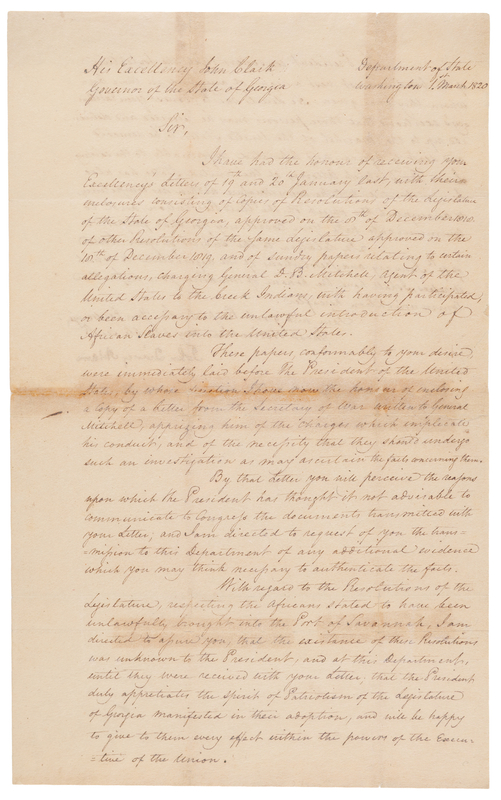 His Excellency John Clark
Governor of the State of Georgia
Department of State
Washington 1. March 1820
Sir,
I have had the honour of receiving your
Excellency's Letters of 19th and 20th January last, with their
enclosures consisting of copies of Resolutions of the Legislature
of the State of Georgia, approved on the of December
of other Resolutions of the same Legislature approved on the
of December 1819, and of sundry papers relating to certain
allegations, charging General D. B. Mitchell, Agent of the
United States to the Creek Indians, with having participated,
or been accessary to the unlawful introduction of
African Slaves into the United States.
These papers, conformably to your desire,
were immediately laid before the President of the United
States, by whose direction I have now the honour of enclosing
a copy of a Letter from the Secretary of War written to General
Mitchell, apprizing him of the Charges which implicate
his conduct, and of the necessity that they should undergo
such an investigation as may ascertain the facts concerning them.
By that Letter you will perceive the reasons
upon which the President has thought it not advisable to
communicate to Congress the documents transmitted with
your Letter; and I am directed to request of you the trans=
=mission to this Department of any additional evidence
which you may think necessary to authenticate the facts.
With regard to the Resolutions of the
Legislature, respecting the Africans stated to have been
unlawfully brought into the Port of Savannah, I am
directed to assure you, that the existence of these Resolutions
was unknown to the President, and at this Department,
until they were received with your Letter, that the President
duly appretiates the Spirit of Patriotism of the Legislature
of Georgia manifested in their adoption, and will be happy
to give to them every effect within the powers of the Execu=
=tive of the Union.